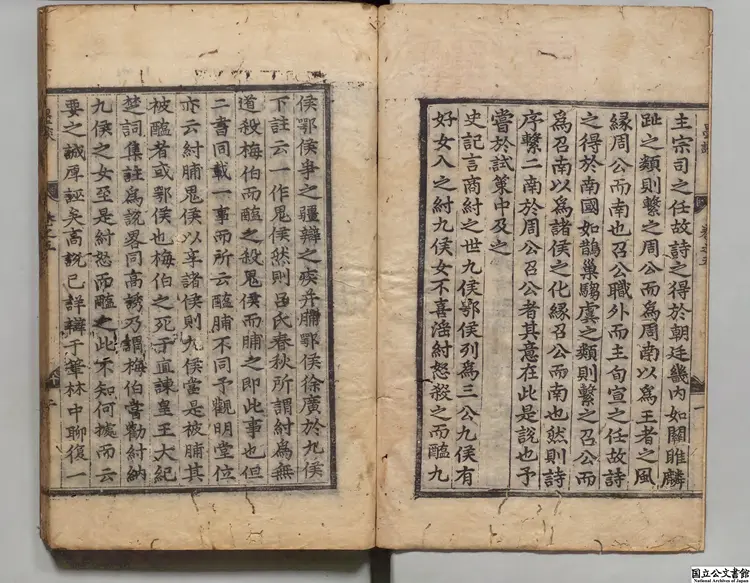 主宗司之任故詩之得於朝廷畿內如關雎麟
趾之類則繫之周公而爲周南以爲王者之風
緣周公而南也召公職外而主旬宣之任故詩
之得於南國如鵲巢騶虞之類則繫之召公而
爲召南以爲諸侯之化緣召公而南也然則詩
序繫二南於周公召公者其意在此是說也予
嘗於試策中及之
史記言商紂之世九侯鄂侯列爲三公九侯有
好女入之紂九侯女不喜淫紂怒殺之而醢九
侯鄂侯爭之疆辯之疾并脯鄂侯徐廣於九侯
下註云一作鬼侯然則呂氏春秋所謂紂爲無
道殺梅伯而醢之殺鬼侯而脯之即此事也但
二書同載一事而所云醢脯不同予觀明堂位
亦云紂脯鬼侯以享諸侯則九侯當是被脯其
被醢者或鄂侯也梅伯之死于直諫皇王大紀
楚詞集註爲說畧同高誘乃謂梅伯嘗勸紂納
九侯之女至是紂怒而醢之此不知何據而云
要之誠厚誣矣高說已詳辯于筆林中聊復一
国立公文書館
National Archives of Japan